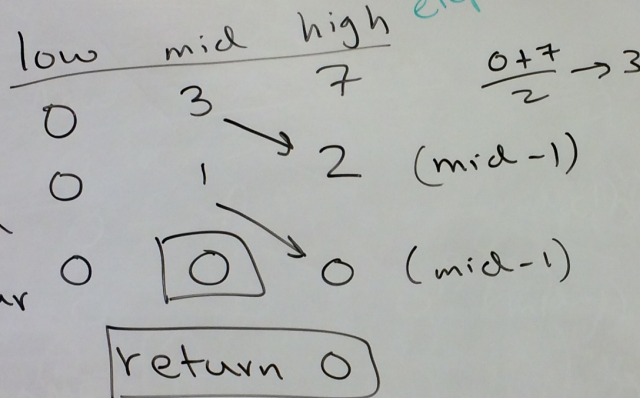 low mid high
0 3 7
0+7/2 → 3
0 1 2 (mid-1)
0 0 0 (mid-1)
return 0